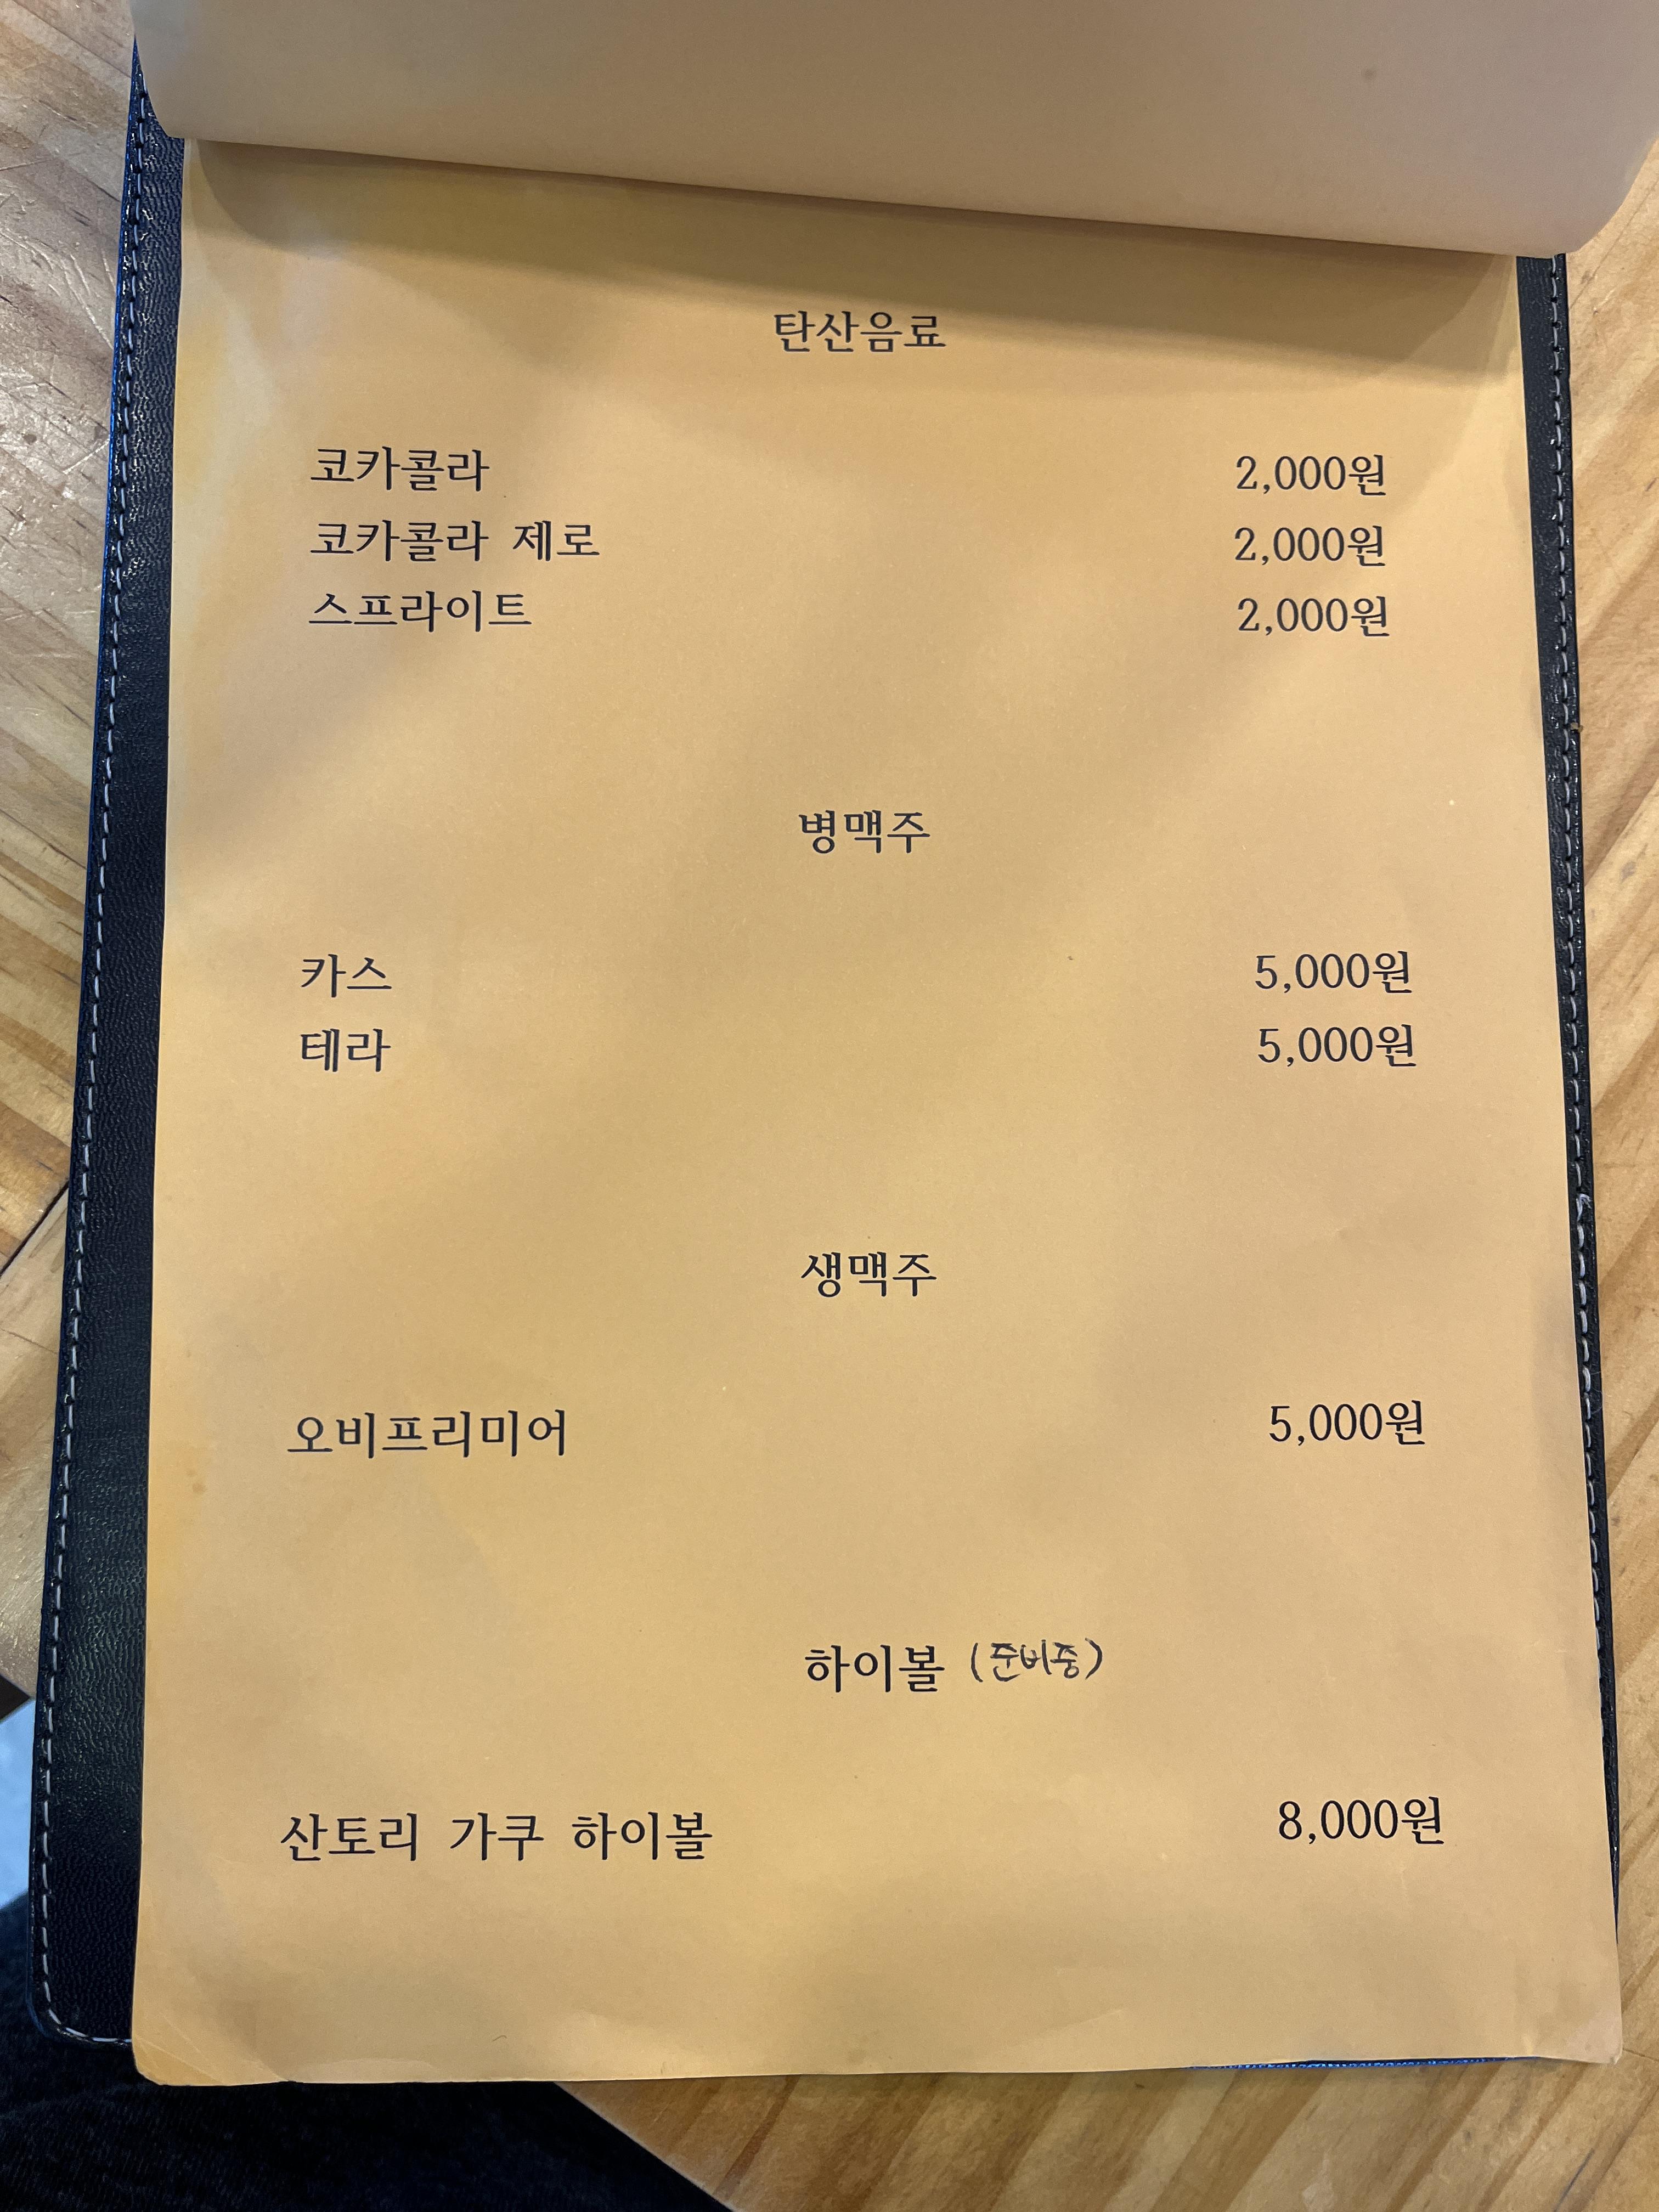 탄산음료
코카콜라 2,000원
코카콜라 제로 2,000원
스프라이트 2,000원
병맥주
카스 5,000원
테라 5,000원
생맥주
오비프리미어 5,000원
하이볼 (준비중)
산토리 가쿠 하이볼 8,000원